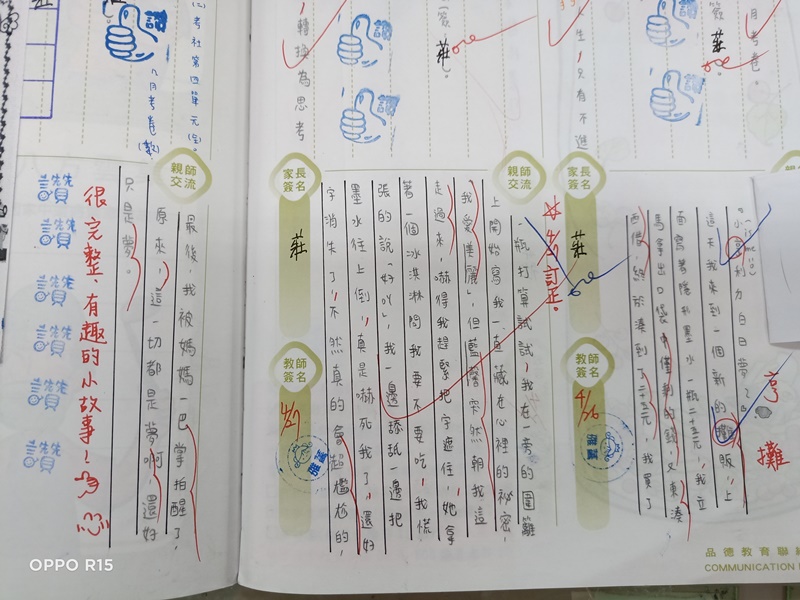 月考卷。
簽
莊
生，只有不進
簽
莊
轉換為思考
讚
讚
讚
親師
交流
家長
簽名
莊
教師
簽名
4/26
亨
攤
這天我來到一個新的攤販，上
面寫著隱形墨水一瓶二十五元，我立
馬拿出口袋中僅剩的錢，又東湊
西借，終於湊到了二十五元，我買了
一瓶打算試試，我在一旁的圍籬
上開始寫我一直藏在心裡的祕密，
「我愛美麗」，但藍馨突然朝我這
走過來，嚇得我趕緊把字遮住，她拿
著一個冰淇淋問我要不要吃，我慌
張的說「好吖」，我一邊舔舐一邊把
墨水往上倒，真是嚇死我了，還好
字消失了，不然真的會超尷尬的，
訂正。
家長
簽名
莊
教師
簽名
4/27
親師
交流
最後，我被媽媽一巴掌拍醒了，
原來，這一切都是夢啊，還好
只是夢。
很完整、有趣的小故事！
讚
讚
讚
讚
讚
讚
品德教育聯絡
COMMUNICATION
OPPO R15